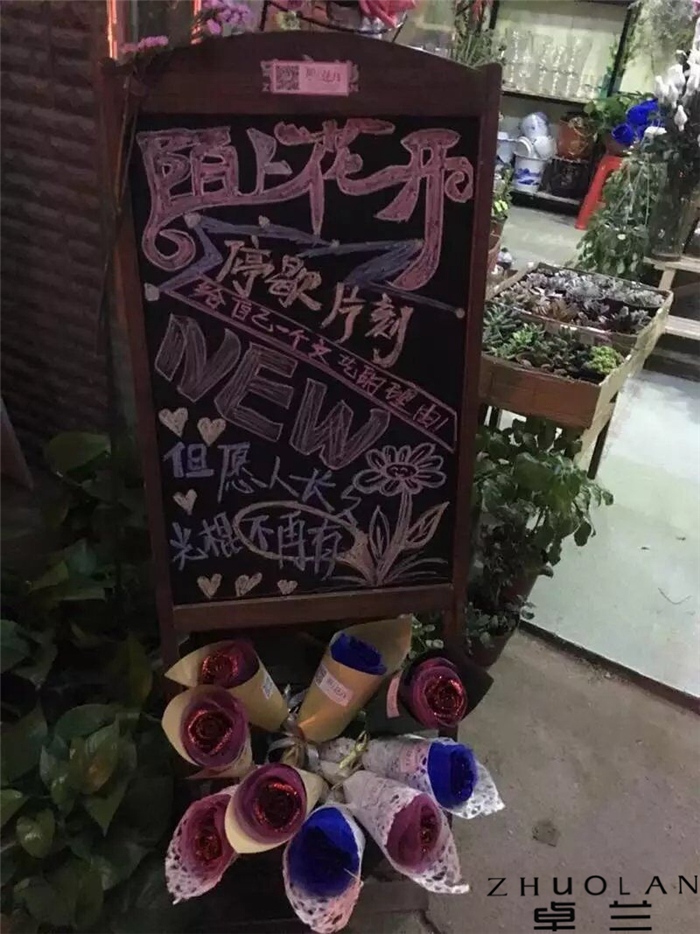 陌上花开
停歇片刻
给自己一个文艺的理由!
NEW
但愿人长久
光棍不再有
ZHUOLAN
卓兰